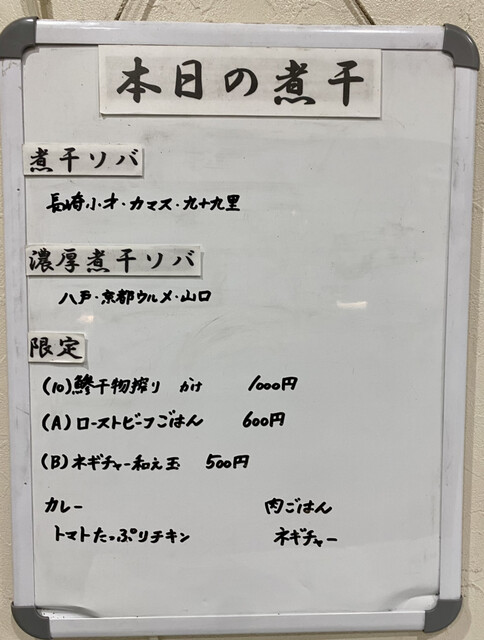 本日の煮干
煮干ソバ
長崎小才・カマス・九十九里
濃厚煮干ソバ
八戸・京都ウルメ・山口
限定
(10)鯵干物搾り かけ 1000円
(A)ローストビーフごはん 600円
(B)ネギチャー和え玉 500円
カレー 肉ごはん
トマトたっぷりチキン ネギチャー